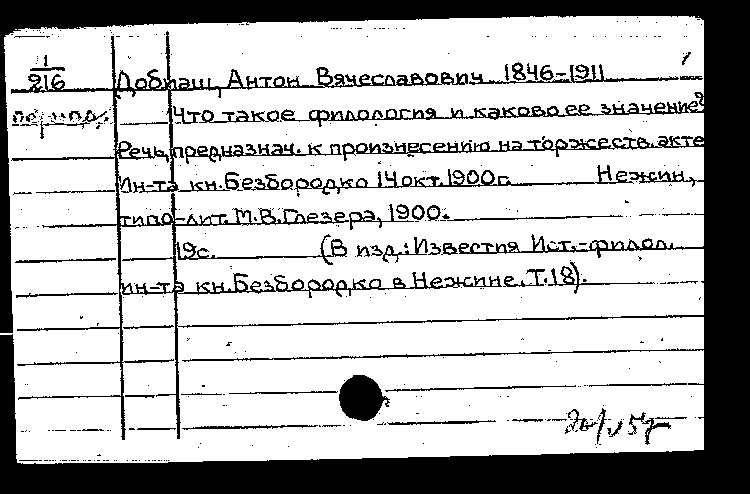 1
216
Добиаш, Антон Вячеславович 1846-1911
период.
Что такое филология и каково ее значение?
Речь, предназнач. к произнесению на торжеств. акте
Ин-та кн. Безбородко 14 окт. 1900г. Нежин,
типо-лит. М.В. Глезера, 1900.
19с. (В изд.: Известия Ист.-филол.
ин-та кн. Безбородко в Нежине. Т.18).